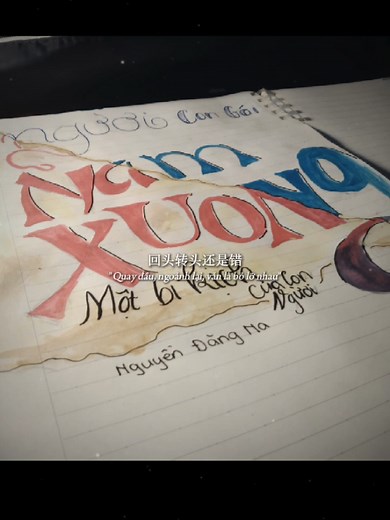 Người con gái
Nam
XƯƠNG
回头转头还是错
"Quay đầu, ngoảnh lại, vẫn là bỏ lỡ nhau"
Một bi kịch
Của con
Người
Nguyễn Đăng Na